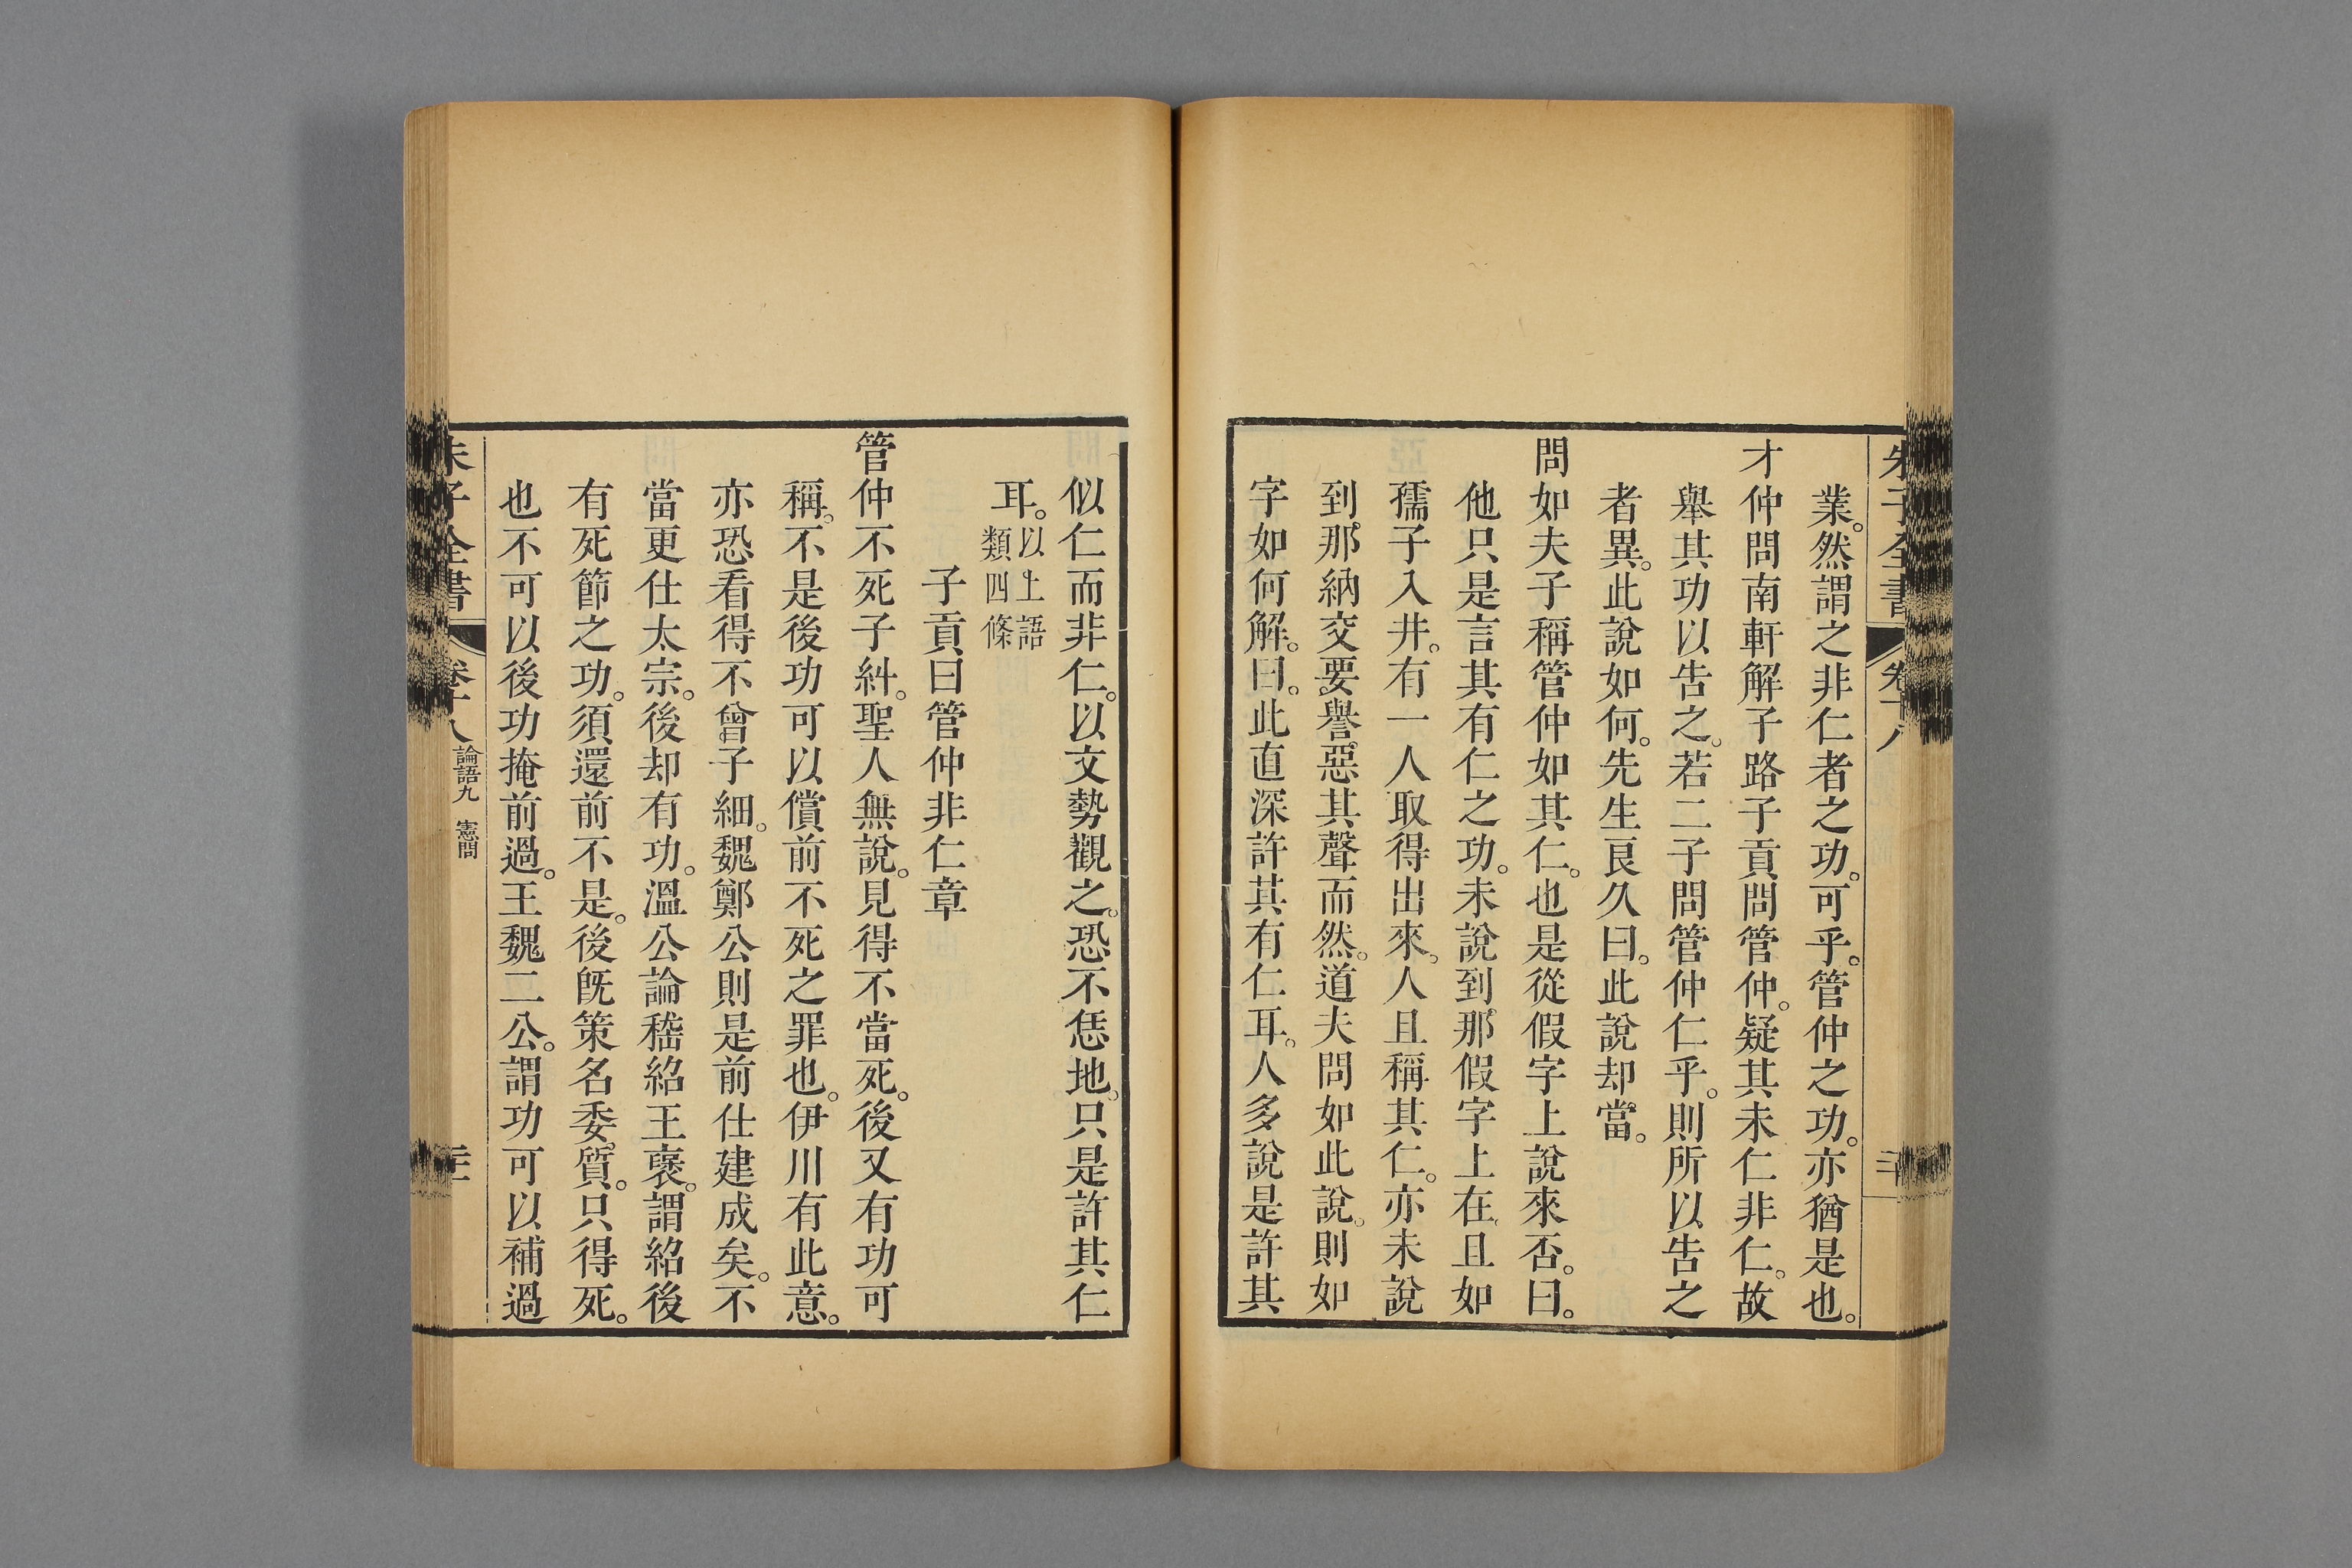 朱子全書 卷十八
業。然謂之非仁者之功。可乎。管仲之功。亦猶是也。
才仲問南軒解子路子貢問管仲。疑其未仁非仁。故
舉其功以告之。若二子問管仲仁乎。則所以告之
者異。此說如何。先生良久曰。此說却當。
問如夫子稱管仲如其仁。也是從假字上說來否。曰。
他只是言其有仁之功。未說到那假字上在。且如
孺子入井。有一人取得出來。人且稱其仁。亦未說
到那納交要譽惡其聲而然。道夫問如此說。則如
字如何解。曰。此直深許其有仁耳。人多說是許其
似仁而非仁。以文勢觀之。恐不恁地。只是許其仁
耳。以上語類四條
子貢曰管仲非仁章
管仲不死子糾。聖人無說。見得不當死。後又有功可
稱。不是後功可以償前不死之罪也。伊川有此意。
亦恐看得不曾子細。魏鄭公則是前仕建成矣。不
當更仕太宗。後却有功。溫公論嵇紹王裒。謂紹後
有死節之功。須還前不是。後旣策名委質。只得死。
也不可以後功掩前過。王魏二公。謂功可以補過
朱子全書 卷十八 論語九 憲問